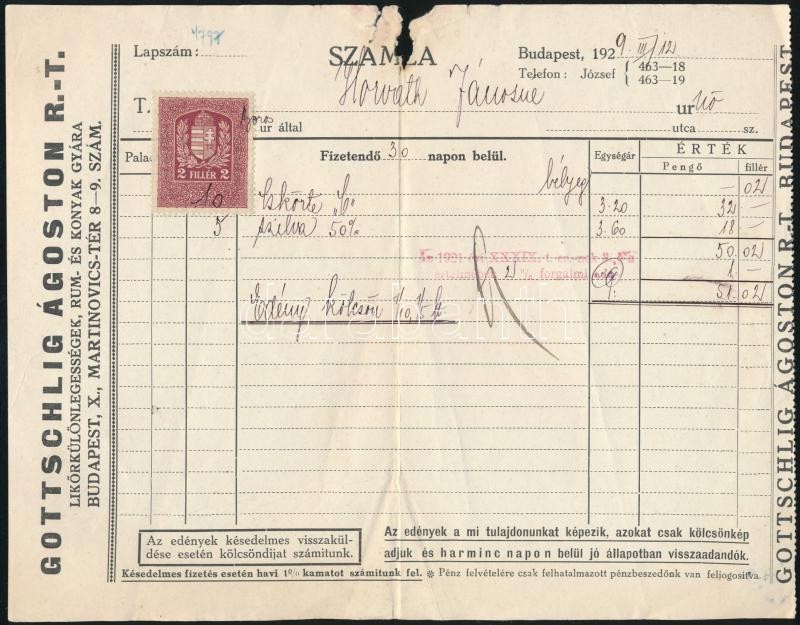 4797
Lapszám:
SZÁMLA
Budapest, 1929 III/12
Telefon: József { 463—18
463—19
T. Horváth Jánosné
ur nő
Boros ur által
utca sz.
2 FILLÉR 2
Fizetendő 30 napon belül.
Egységár
ÉRTÉK
Pengő fillér
bélyeg — 02
10 "C" 3.20 32 —
5 szilva 50% 3.60 18 —
50.02
Az 1921 évi XXXIX. t. cz.
2 % forgalmi adó
1 —
51.02
Edény kölcsön 1/10, 1/5
darabanth
Az edények késedelmes visszakül-
dése esetén kölcsöndijat számitunk.
Az edények a mi tulajdonunkat képezik, azokat csak kölcsönkép
adjuk és harminc napon belül jó állapotban visszaadandók.
Késedelmes fizetés esetén havi 1% kamatot számitunk fel. * Pénz felvételére csak felhatalmazott pénzbeszedőnk van feljogositva.
GOTTSCHLIG ÁGOSTON R.-T.
LIKŐRKÜLÖNLEGESSÉGEK, RUM- ÉS KONYAK GYÁRA
BUDAPEST, X., MARTINOVICS-TÉR 8—9. SZÁM.
GOTTSCHLIG ÁGOSTON R.-T. BUDAPEST